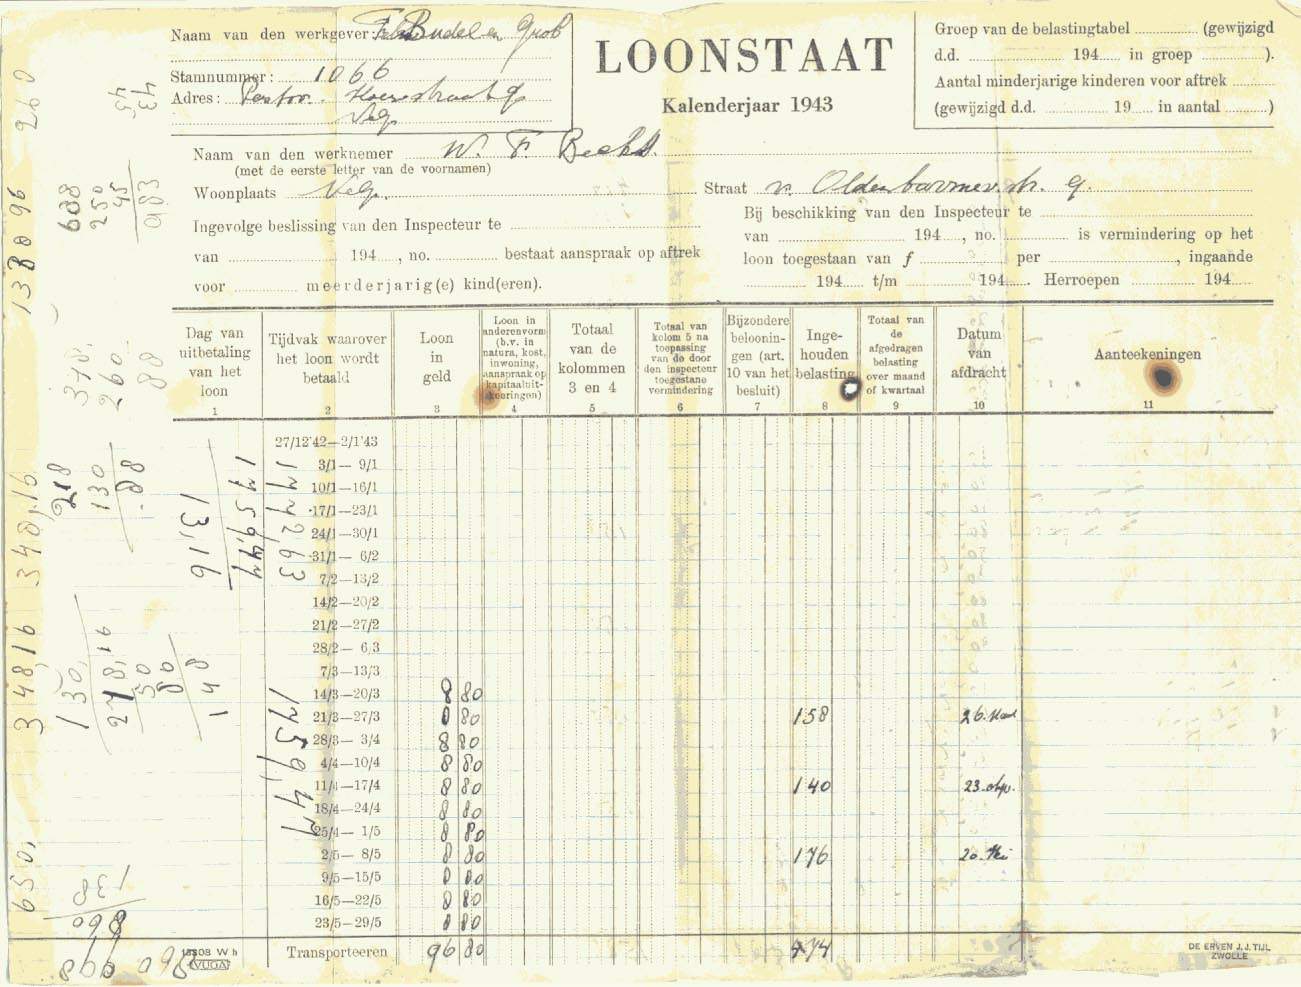 Naam van den werkgever: Fa. Budel en Grob
Stamnummer: 1066
Adres: Pastoor
Velp
LOONSTAAT
Kalenderjaar 1943
Groep van de belastingtabel (gewijzigd
d.d. 194 in groep ).
Aantal minderjarige kinderen voor aftrek
(gewijzigd d.d. 19 in aantal )
Naam van den werknemer W. F. Becht.
(met de eerste letter van de voornamen)
Woonplaats Velp. Straat v. Oldenbarnev.str. 9.
Ingevolge beslissing van den Inspecteur te
van 194 , no. bestaat aanspraak op aftrek
voor meerderjarig(e) kind(eren).
Bij beschikking van den Inspecteur te
van 194 , no. is vermindering op het
loon toegestaan van f per , ingaande
194 t/m 194 . Herroepen 194
Dag van uitbetaling van het loon 1
Tijdvak waarover het loon wordt betaald 2
Loon in geld 3
Loon in anderenvorm (b.v. in natura, kost, inwoning, aanspraak op kapitaaluit- keeringen) 4
Totaal van de kolommen 3 en 4 5
Totaal van kolom 5 na toepassing van de door den inspecteur toegestane vermindering 6
Bijzondere beloonin- gen (art. 10 van het besluit) 7
Inge- houden belasting 8
Totaal van de afgedragen belasting over maand of kwartaal 9
Datum van afdracht 10
Aanteekeningen 11
27/12'42—2/1'43
3/1— 9/1
10/1—16/1
17/1—23/1
24/1—30/1
31/1— 6/2
7/2—13/2
14/2—20/2
21/2—27/2
28/2— 6/3
7/3—13/3
14/3—20/3 8 80
21/3—27/3 8 80 158 26.
28/3— 3/4 8 80
4/4—10/4 8 80
11/4—17/4 8 80 140 23. Ap.
18/4—24/4 8 80
25/4— 1/5 8 80
2/5— 8/5 8 80 176 20. Mei
9/5—15/5 8 80
16/5—22/5 8 80
23/5—29/5 8 80
Transporteeren 96 80 474
13808 W h
VUGA
DE ERVEN J.J. TIJL
ZWOLLE
260
43
45
688
250
45
983
138096
348,
260
88
218
130
88
348,16
13,16
1759,47
1772 63
1759,47
34816
130,
218,16
50
80
148
650,
138
860
860
998